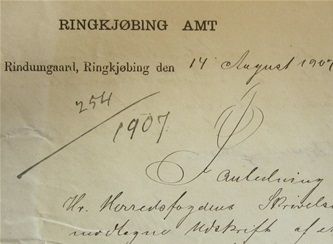 RINGKJØBING AMT
Rindumgaard, Ringkjøbing den 14 August 1907
254/1907
I Anledning
Hr. Herredsfogdens Skrivelse
modtagne Udskrift af